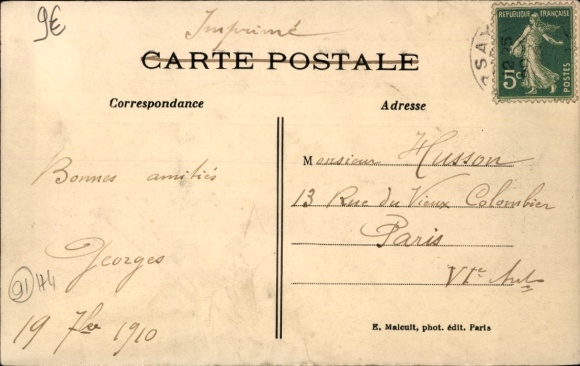 9€
Imprimé
CARTE POSTALE
RÉPUBLIQUE FRANÇAISE
5c
POSTES
Correspondance
Adresse
Bonnes amitiés
Georges
19 7bre 1910
91 174
Monsieur Husson
13 Rue du Vieux Colombier
Paris
VIe
E. Malcuit, phot. édit. Paris